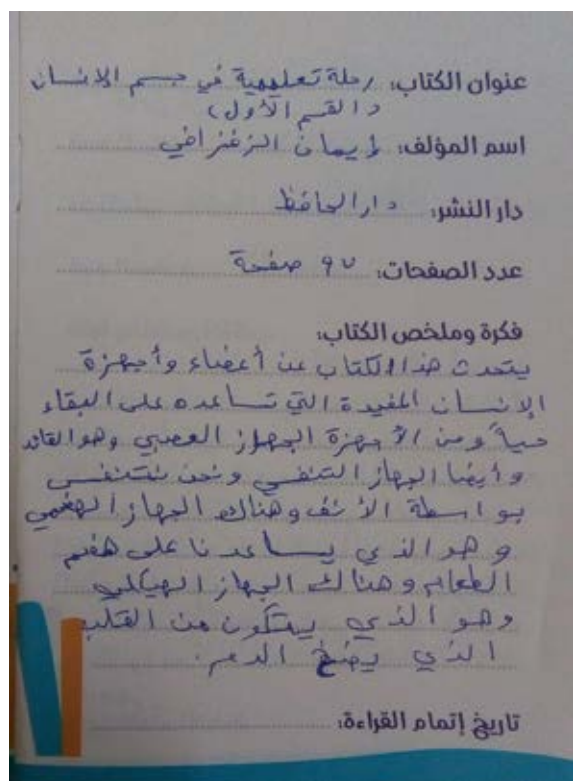 عنوان الكتاب: رحلة تعليمية في جسم الانسان
(القسم الأول)
اسم المؤلف: إيمان الزغرافي
دار النشر: دار الحافظ
عدد الصفحات: ٩٧ صفحة
فكرة وملخص الكتاب:
يتحدث هذا الكتاب عن أعضاء وأجهزة
الإنسان المفيدة التي تساعده على البقاء
حياً ومن الأجهزة الجهاز العصبي وهو القائد
وأيضا الجهاز التنفسي ونحن نتنفس
بواسطة الأنف وهناك الجهاز الهضمي
وهو الذي يساعدنا على هضم
الطعام وهناك الجهاز الهيكلي
وهو الذي يتكون من القلب
الذي يضخ الدم.
تاريخ إتمام القراءة: